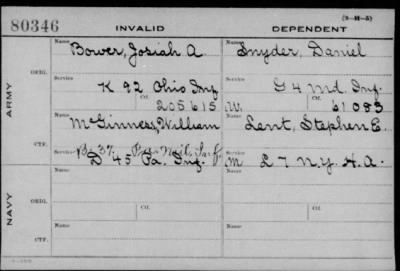 (3-H-5)
80346 INVALID DEPENDENT
ARMY
ORIG.
Name Bower, Josiah A. Name Snyder, Daniel
Service K 92 Ohio Inf. Service G 4 Md. Inf.
Ctf. 205.615 W. Ctf. 61083
CTF.
Name McGinness, William Name Lent, Stephen E.
Service D 45 Pa. Inf. Service M L 7 N.Y. H.A.
NAVY
ORIG.
Name Name
Service Ctf. Service Ctf.
CTF.
Name Name
Service Service